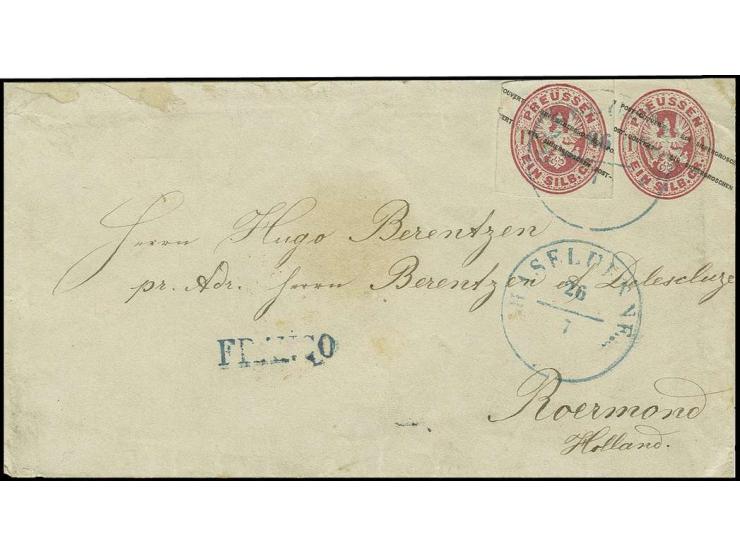 PREUSSEN
EIN SILB. G.
PREUSSEN
EIN SILB. G.
Herrn Hugo Berentzen
pr. Adr. Herrn Berentzen & Delescluze
HASELUENNE
26
7
FRANCO
Roermond
Holland.